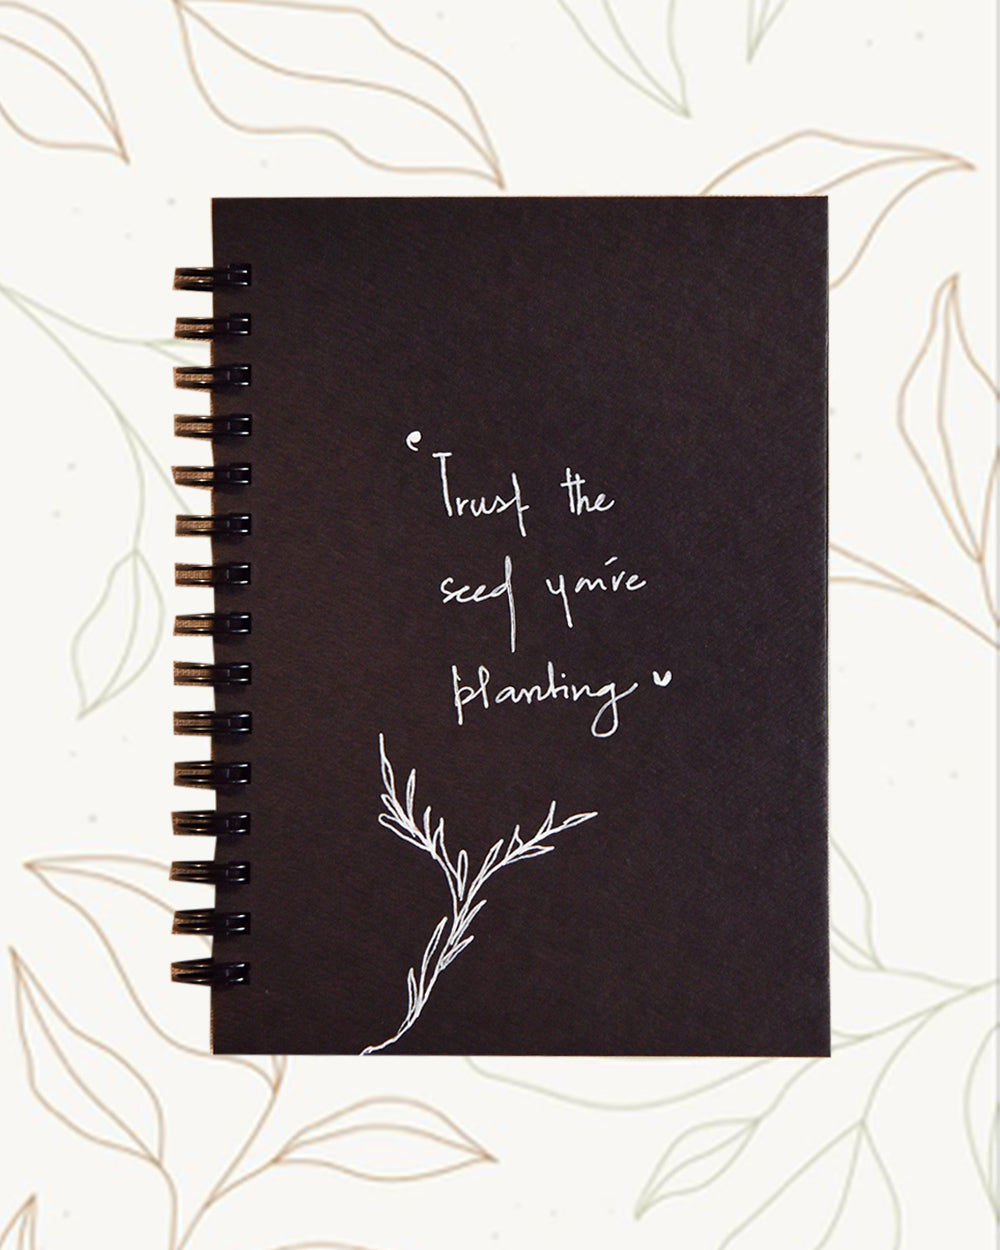 ‘Trust the
seed you've
planting